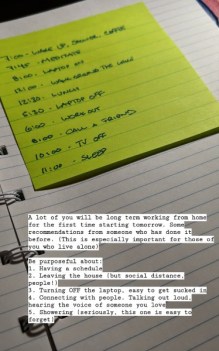 7:00 - WAKE UP, SHOWER, COFFEE
8:00 - LAPTOP ON
12:30 - LUNCH
5:30 - LAPTOP OFF
6:00 - WORK OUT
8:00 - CALL A FRIEND
10:00 - TV OFF
11:00 - SLEEP
A lot of you will be long term working from home
for the first time starting tomorrow. Home
recommendations from someone who has done it
before. (This is especially important for those of
you who live alone)
Be purposeful about:
1. Having a schedule
2. Leaving the house (but social distance,
people!)
3. Turning OFF the laptop, easy to get sucked in
4. Connecting with people. Talking out loud,
hearing the voice of someone you love
5. Showering (seriously, this one is easy to
forget)